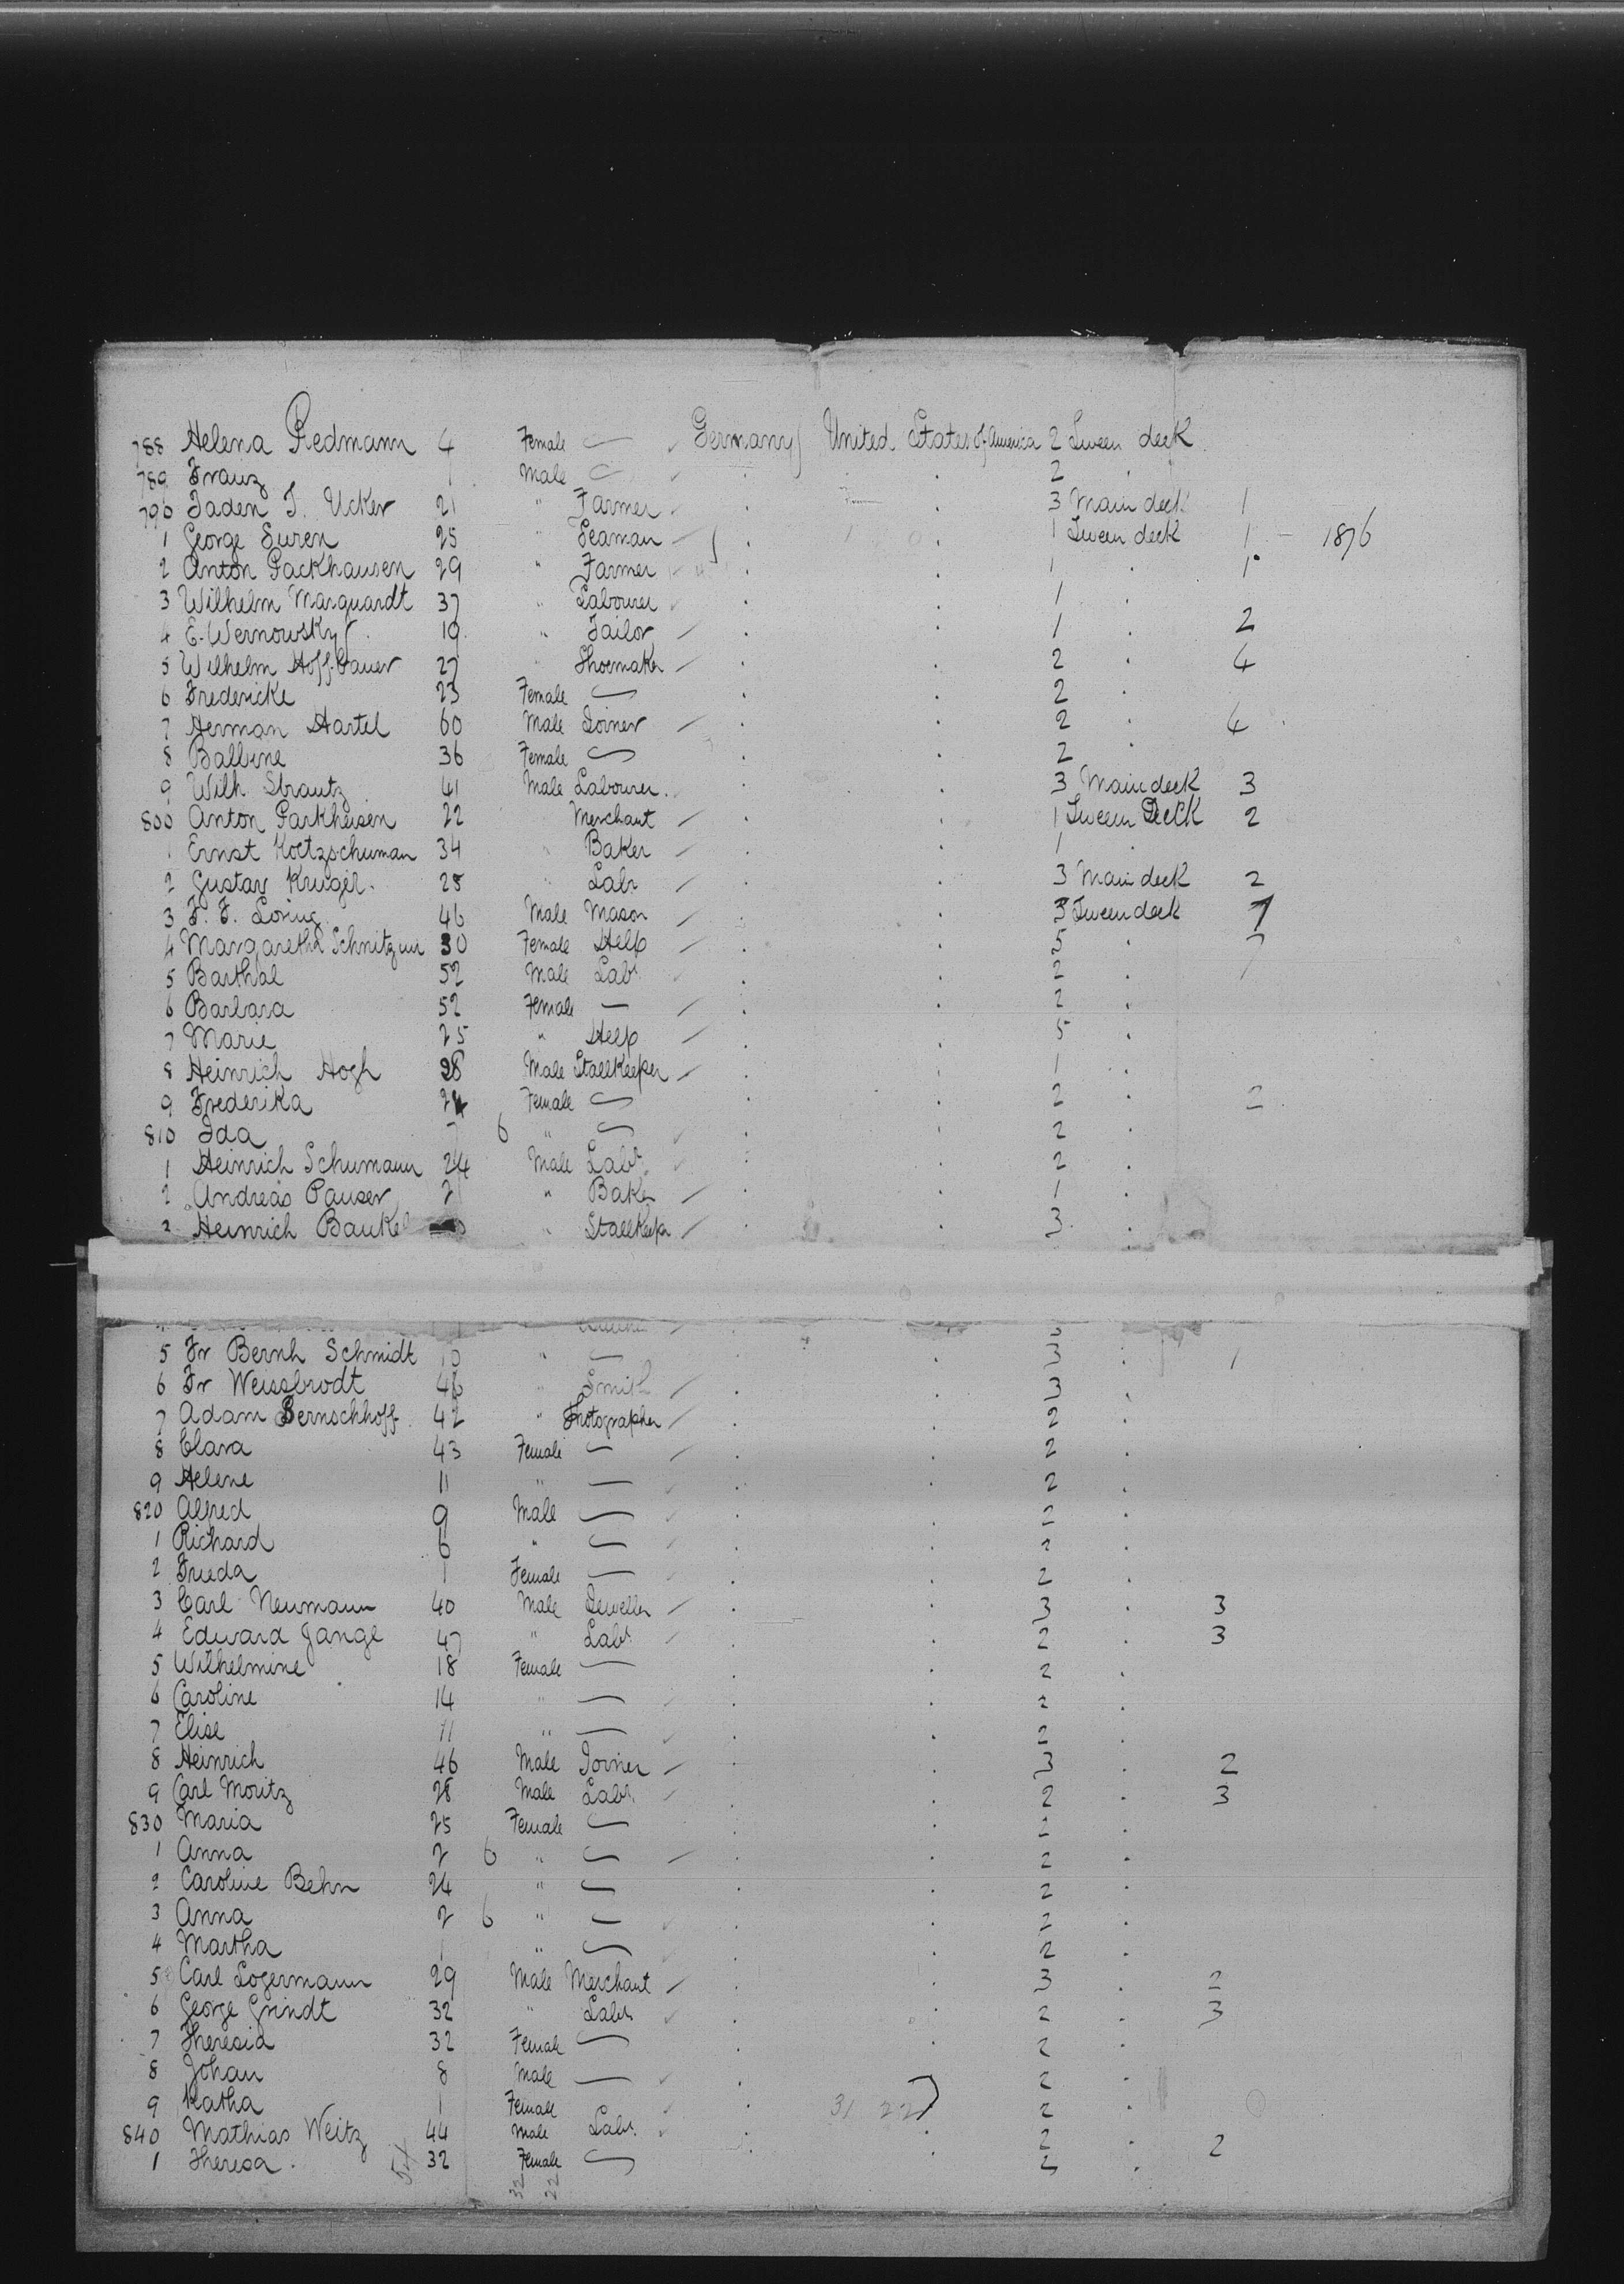 788 Helena Riedmann 4 Female — Germany United States of America 2 Tween deck
789 Franz 1 Male — . . 2 .
790 Jaden J. Ucker 21 " Farmer . . 3 Main deck 1
1 George Suren 25 " Seaman . . 1 Tween deck 1 - 1876
2 Anton Packhausen 29 " Farmer . . 1 . 1
3 Wilhelm Marquardt 37 " Labourer . . 1 .
4 E. Wernowsky 19 " Tailor . . 1 . 2
5 Wilhelm Hoffbauer 27 " Shoemaker . . 2 . 4
6 Fredericke 23 Female — . . 2 .
7 Herman Hartel 60 Male Joiner . . 2 . 4
8 Balbine 36 Female — . . 2 .
9 Wilh. Strautz 41 Male Labourer . . 3 Main deck 3
800 Anton Parkheisen 22 Merchant . . 1 Tween Deck 2
1 Ernst Koetzschuman 34 " Baker . . 1 .
2 Gustav Kruger 25 " Labr . . 3 Main deck 2
3 F. F. Loring 46 Male Mason . . 3 Tween deck 1
4 Margaretha 30 Female Help . . 5 .
5 Barthal 52 Male Labr . . 2 .
6 Barbara 52 Female — . . 2 .
7 Marie 25 " Help . . 5 .
8 Heinrich Hogh 28 Male Stallkeeper . . 1 .
9 Frederika 24 Female — . . 2 . 2
810 Ida 6 " — . . 2 .
1 Heinrich Schumann 24 Male Labr . . 2 .
2 Andreas Pauser 21 " Baker . . 1 .
Heinrich Baukel " Stallkeeper . . 3 .
5 Fr Bernh Schmidt 10 " — . . 3 . 1
6 Fr Weissbrodt 46 " Smith . . 3 .
7 Adam Bernschhoff 42 " Photographer . . 2 .
8 Clara 43 Female — . . 2 .
9 Helene 11 " — . . 2 .
820 Alfred 9 Male — . . 2 .
1 Richard 6 " — . . 2 .
2 Frieda 1 Female — . . 2 .
3 Carl Neumann 40 Male Jeweller . . 3 . 3
4 Edward Jange 47 " Labr . . 2 . 3
5 Wilhelmine 18 Female — . . 2 .
6 Caroline 14 " — . . 2 .
7 Elise 11 " — . . 2 .
8 Heinrich 46 Male Joiner . . 3 . 2
9 Carl Moritz 28 Male Labr . . 2 . 3
830 Maria 25 Female — . . 2 .
1 Anna 2 6 " — . . 2 .
2 Caroline Behn 24 " — . . 2 .
3 Anna 2 6 " — . . 2 .
4 Martha 1 " — . . 2 .
5 Carl Logermann 29 Male Merchant . . 3 . 2
6 George Grindt 32 " Labr . . 2 . 3
7 Theresia 32 Female — . . 2 .
8 Johan 8 Male — . . 2 .
9 Katha 1 Female . 31 22 2 .
840 Mathias Weitz 44 Male Labr . . 2 . 2
1 Theresa 54 32 Female — 2 .
32 22